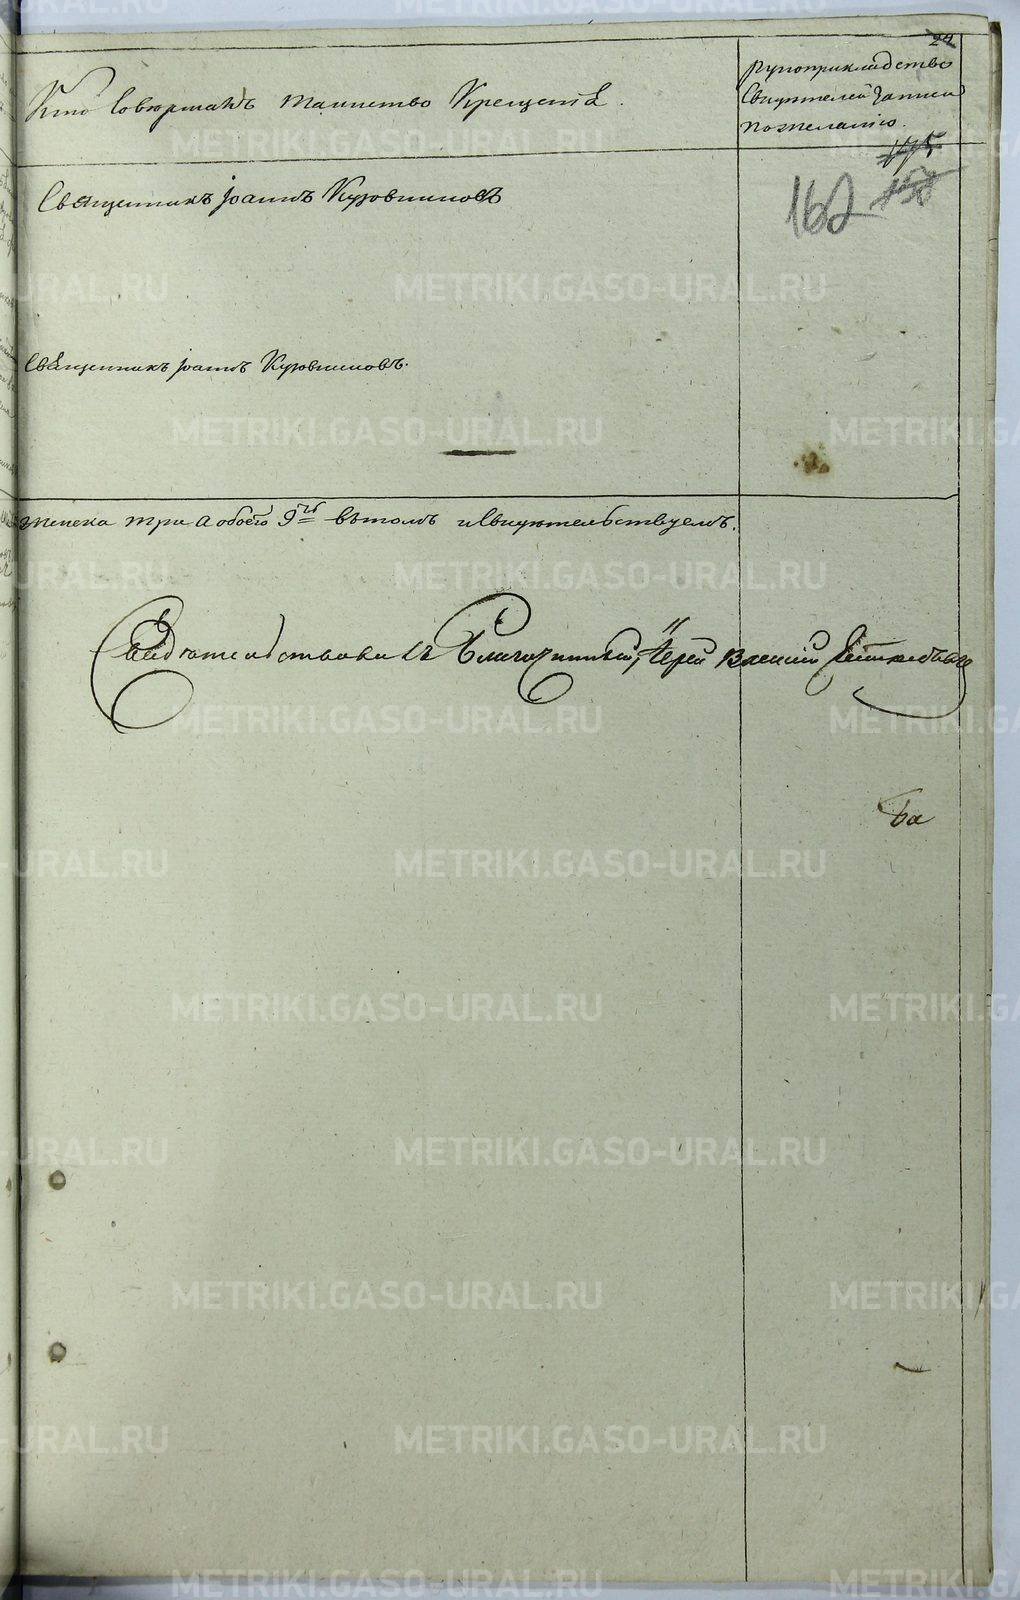 24
Кто Совершалъ таинство Крещенія.
рукоприкладство
Свидѣтелей записи
по желанію.
175
158
162
Священникъ Іоаннъ
Священникъ Іоаннъ
женска три а обоего 9ть вѣтомъ и Свидѣтельствуемъ.
Свидѣтельствовалъ Благочинный, Іерей Василій
ба
METRIKI.GASO-URAL.RU